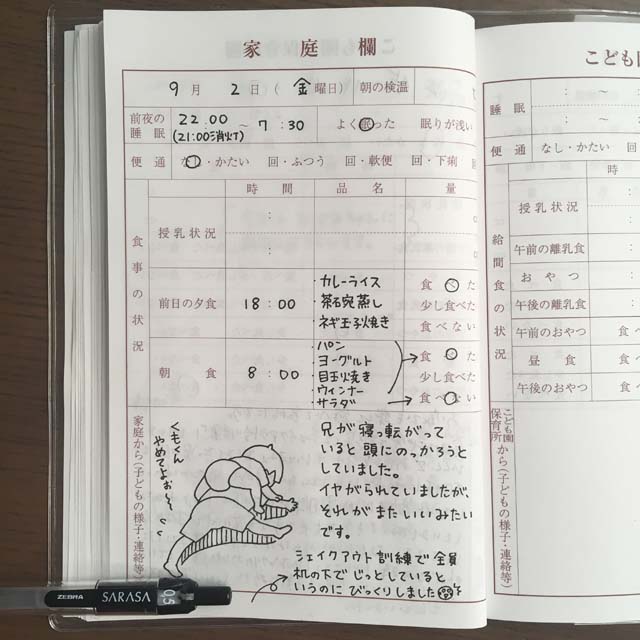 家庭欄
9月 2日(金曜日) 朝の検温
前夜の睡眠 22:00 (21:00消灯) ~ 7:30 よく眠った 眠りが浅い
便通 なし・かたい 回・ふつう 回・軟便 回・下痢 回
食事の状況
時間 品名 量
授乳状況 : :
前日の夕食 18:00
・カレーライス
・茶碗蒸し
・ネギ玉子焼き
食べた
少し食べた
食べない
朝食 8:00
・パン
・ヨーグルト
・目玉焼き
・ウィンナー
・サラダ
食べた
少し食べた
食べない
家庭から(子どもの様子・連絡等)
くもくん
やめてよお〜〜
兄が寝っ転がって
いると頭にのっかろうと
していました。
イヤがられていましたが、
それがまたいいみたい
です。
シェイクアウト訓練で全員
机の下でじっとしていると
いうのにびっくりしました
ZEBRA SARASA 0.5
こども園
睡眠 : ~ :
: ~ :
便通 なし・かたい 回
給間食の状況
時
授乳状況 : :
午前の離乳食 :
おやつ :
午後の離乳食 :
午前のおやつ 食べ
昼食 食べ
午後のおやつ 食べ
こども園
保育所
から(子どもの様子・連絡等)